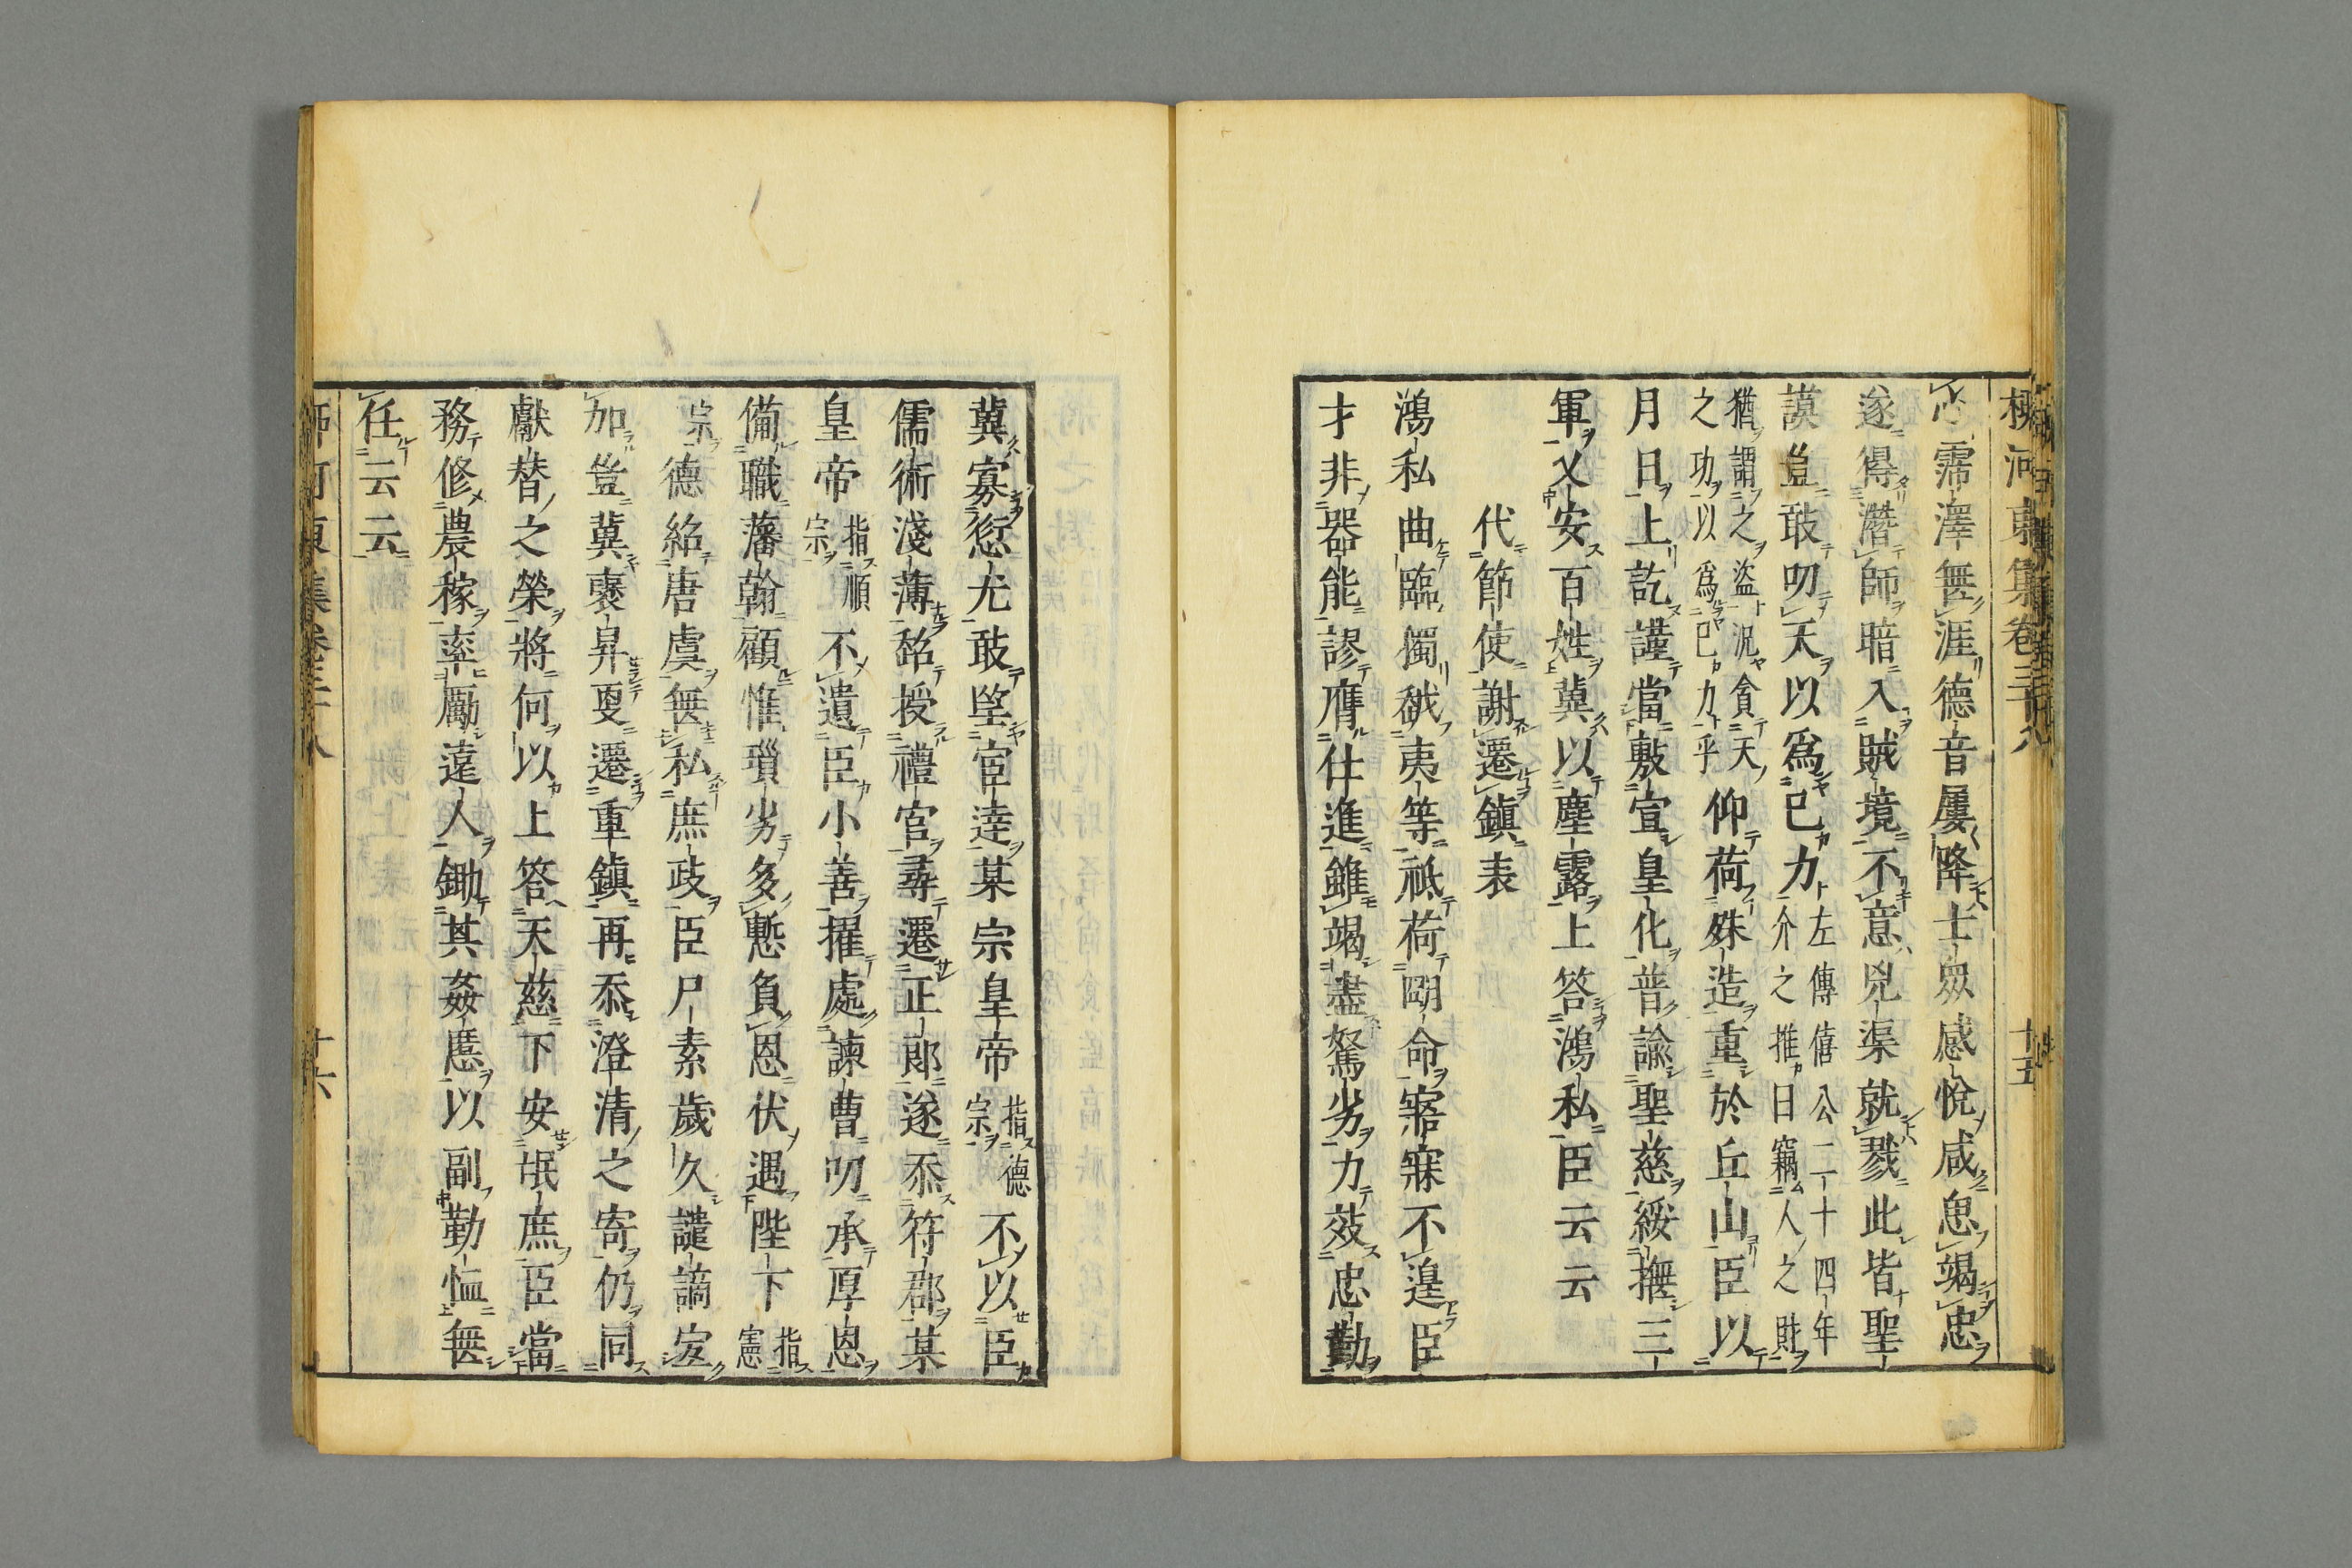 柳河東集卷三十八 十五
心霈澤無涯德音屢降士衆感悅咸思竭忠
遂得潛師暗入賊境不意兇渠就戮此皆聖
謨豈敢叨天以爲已力左傳僖公二十四年
介之推曰竊人之財
猶謂之盜況貪天
之功以爲已力乎仰荷殊造重於丘山臣以
月日上訖謹當敷宣皇化普諭聖慈綏撫三
軍乂安百姓冀以塵露上答鴻私臣云云
代節使謝遷鎮表
鴻私曲臨獨越夷等祗荷明命寤寐不遑臣
才非器能謬膺仕進雖竭盡駑劣力效忠勤
冀寡愆尤敢望宦達某宗皇帝指德
宗不以臣
儒術淺薄超授禮官尋遷正郎遂忝符郡某
皇帝指順
宗不遺臣小善擢處諫曹叨承厚恩
備職藩翰顧惟瑣劣多慙負恩伏遇陛下指
憲
宗德紹唐虞無私庶政臣尸素歲久譴謫宜
加豈冀褒昇更遷重鎮再忝澄清之寄仍同
獻替之榮將何以上答天慈下安氓庶臣當
務修農稼率厲遠人鋤其姦慝以副勤恤無
任云云